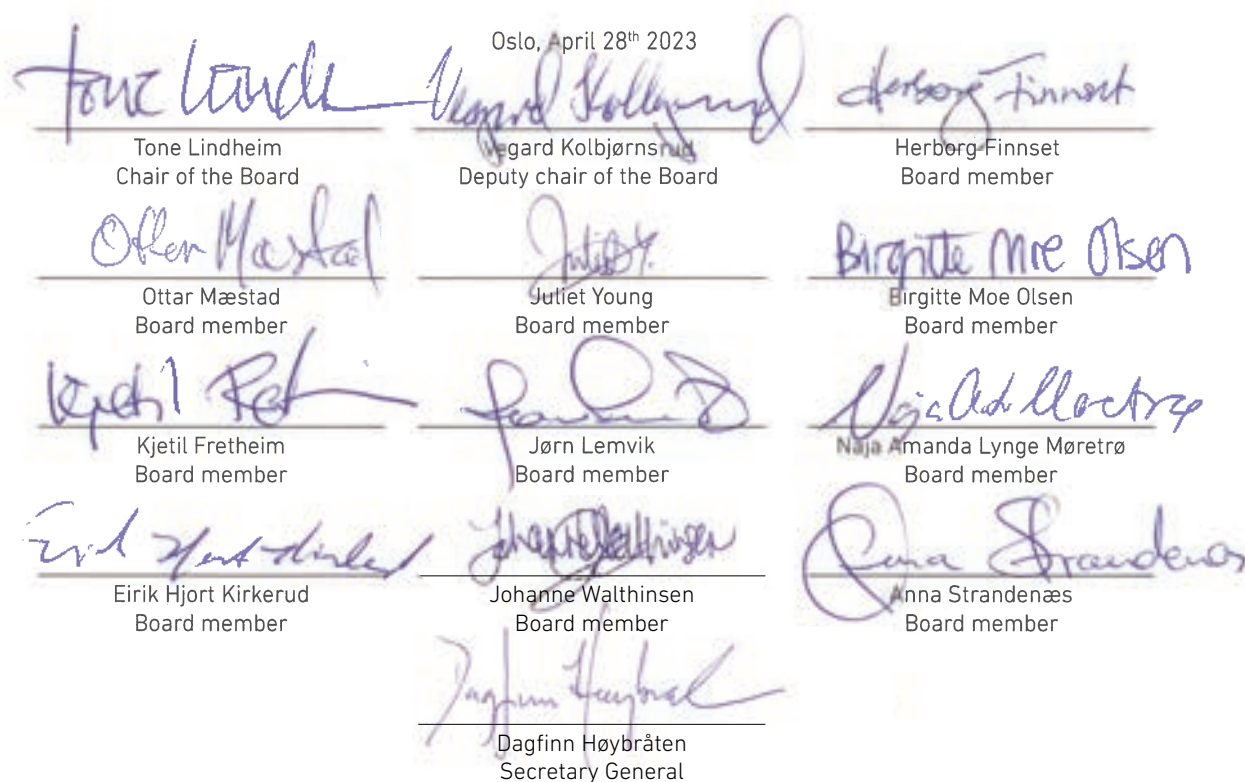 Oslo, April 28th 2023
Tone Lindheim
Chair of the Board
Vegard Kolbjørnsrud
Deputy chair of the Board
Herborg Finnset
Board member
Ottar Mæstad
Board member
Juliet Young
Board member
Birgitte Moe Olsen
Birgitte Moe Olsen
Board member
Kjetil Fretheim
Board member
Jørn Lemvik
Board member
Naja Amanda Lynge Møretrø
Board member
Eirik Hjort Kirkerud
Board member
Johanne Walthinsen
Board member
Anna Strandenæs
Board member
Dagfinn Høybråten
Secretary General